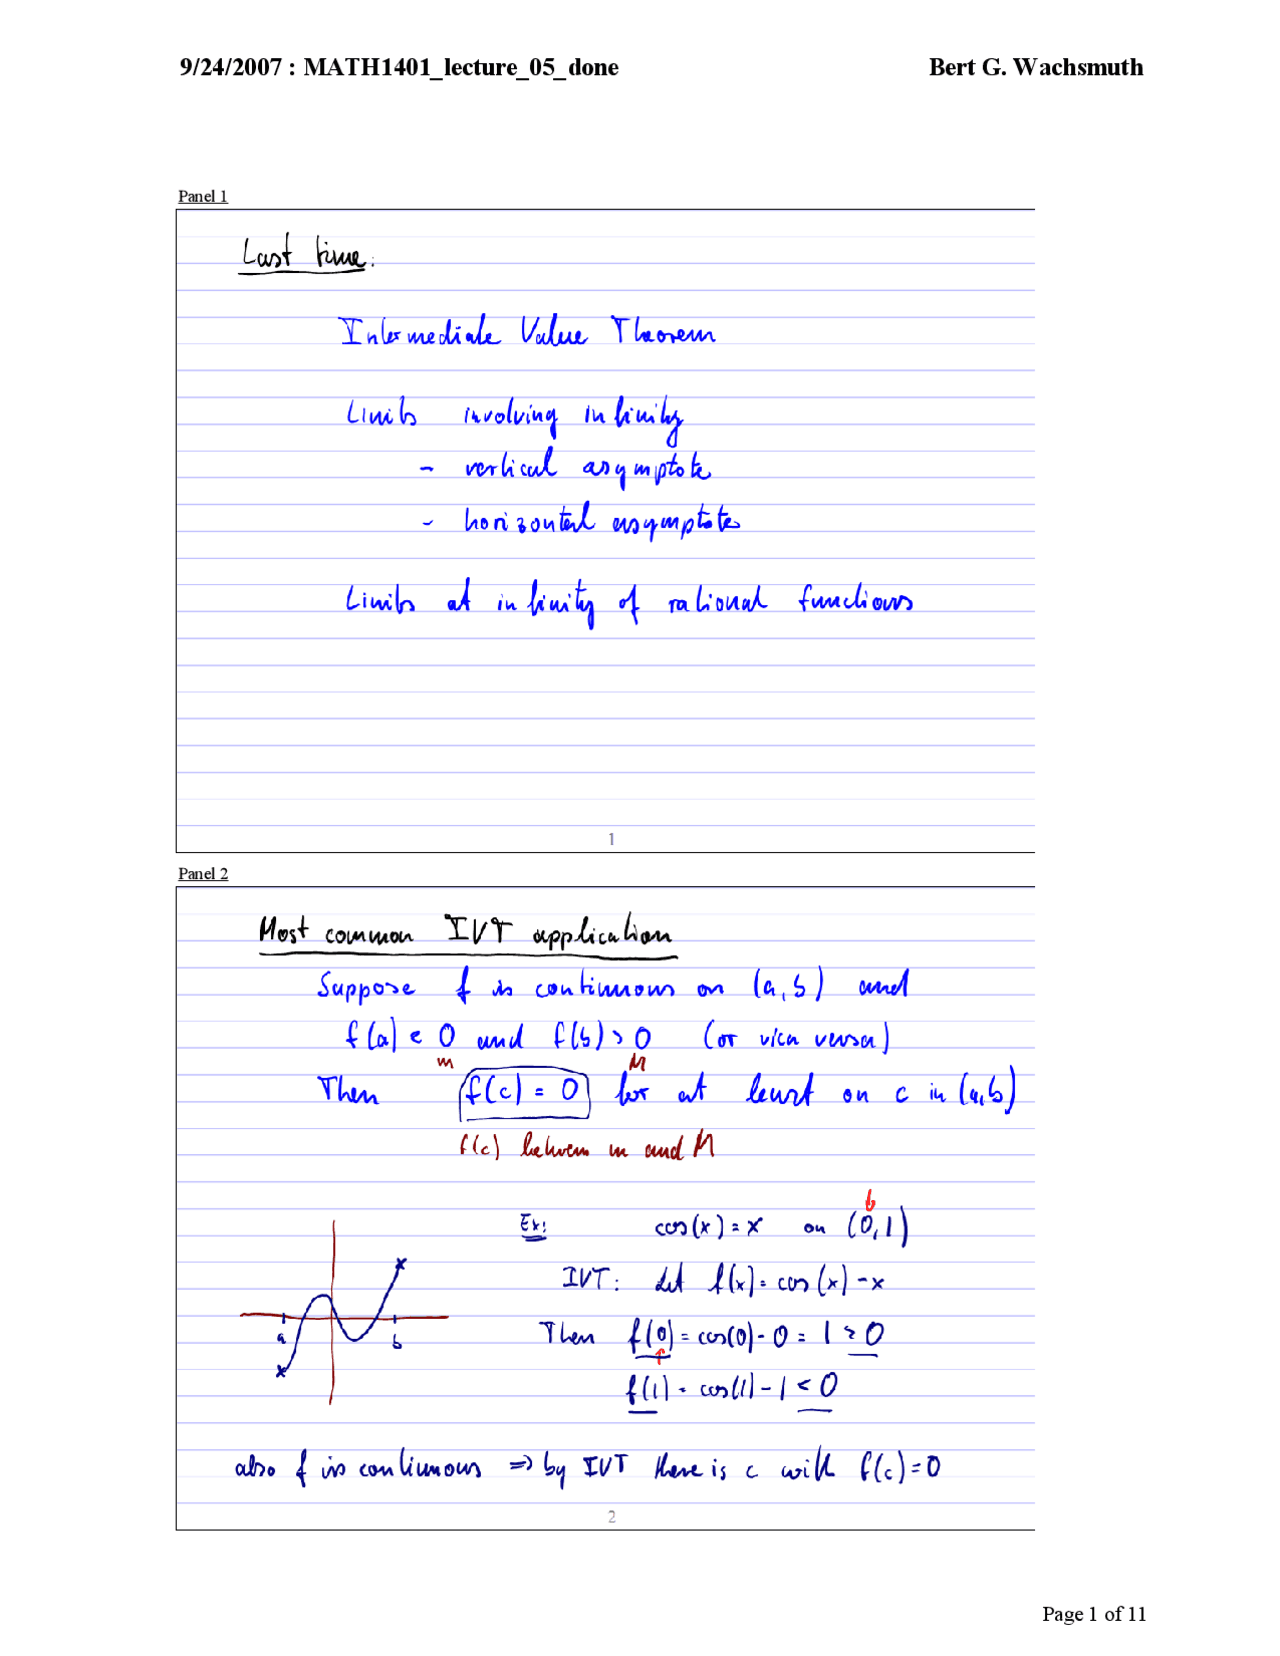 9/24/2007 : MATH1401_lecture_05_done Bert G. Wachsmuth
Panel 1
Last time:
Intermediate Value Theorem
Limits involving infinity
- vertical asymptote
- horizontal asymptotes
Limits at infinity of rational functions
1
Panel 2
Most common IVT application
Suppose f is continuous on (a,b) and
f(a) < 0 and f(b) > 0 (or vica versa)
m M
Then f(c) = 0 for at least on c in (a,b)
f(c) between m and M
Ex: cos(x) = x on (0,1)
IVT: Let f(x) = cos(x) - x
Then f(0) = cos(0) - 0 = 1 > 0
a b
f(1) = cos(1) - 1 < 0
also f is continuous => by IVT there is c with f(c) = 0
2
Page 1 of 11